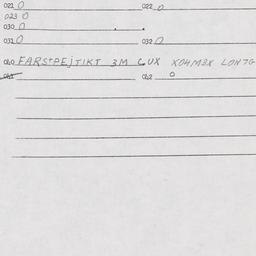 021 0 022 0
023 0
030 0
031 0 032 0
040 FARS+PEJTIKT 3M LUX X04M3X LON7G
042 0